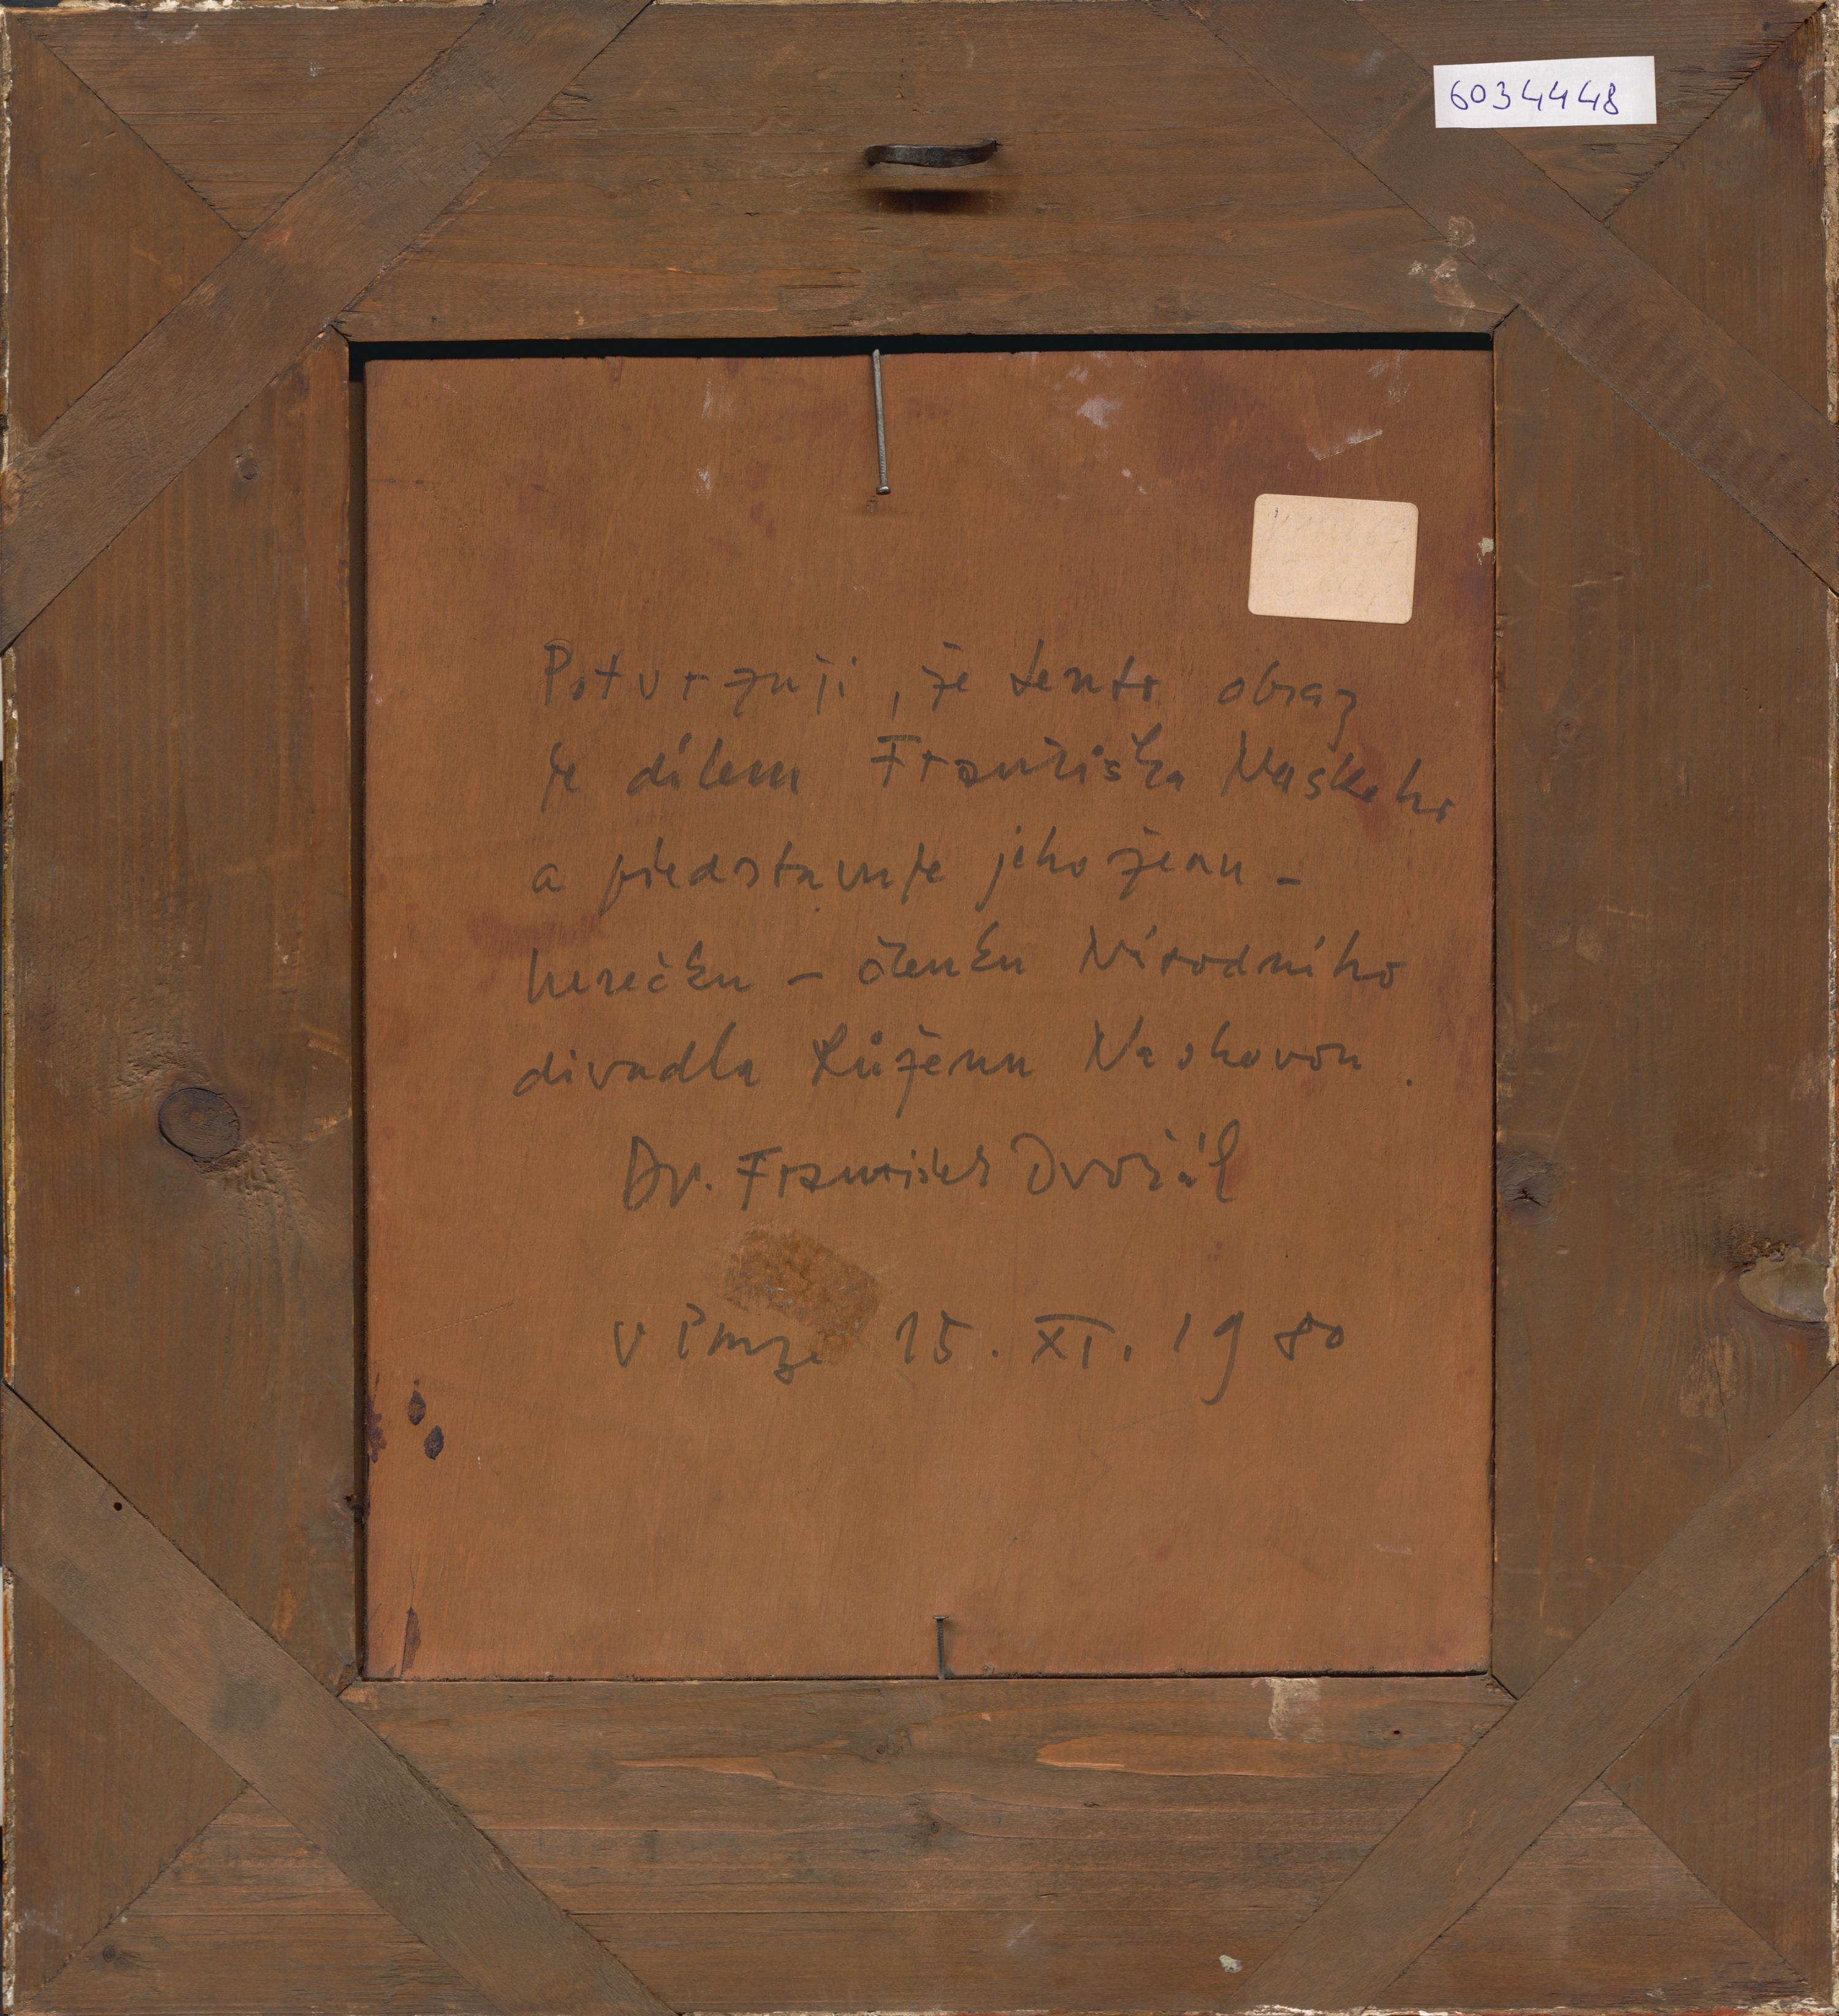 6034448
Potvrzuji, že tento obraz
je dílem Františka Naskeho
a představuje jeho ženu -
herečku - členku Národního
divadla Růženu Naskovou.
Dr. František Dvořák
V Praze 15. XI. 1980